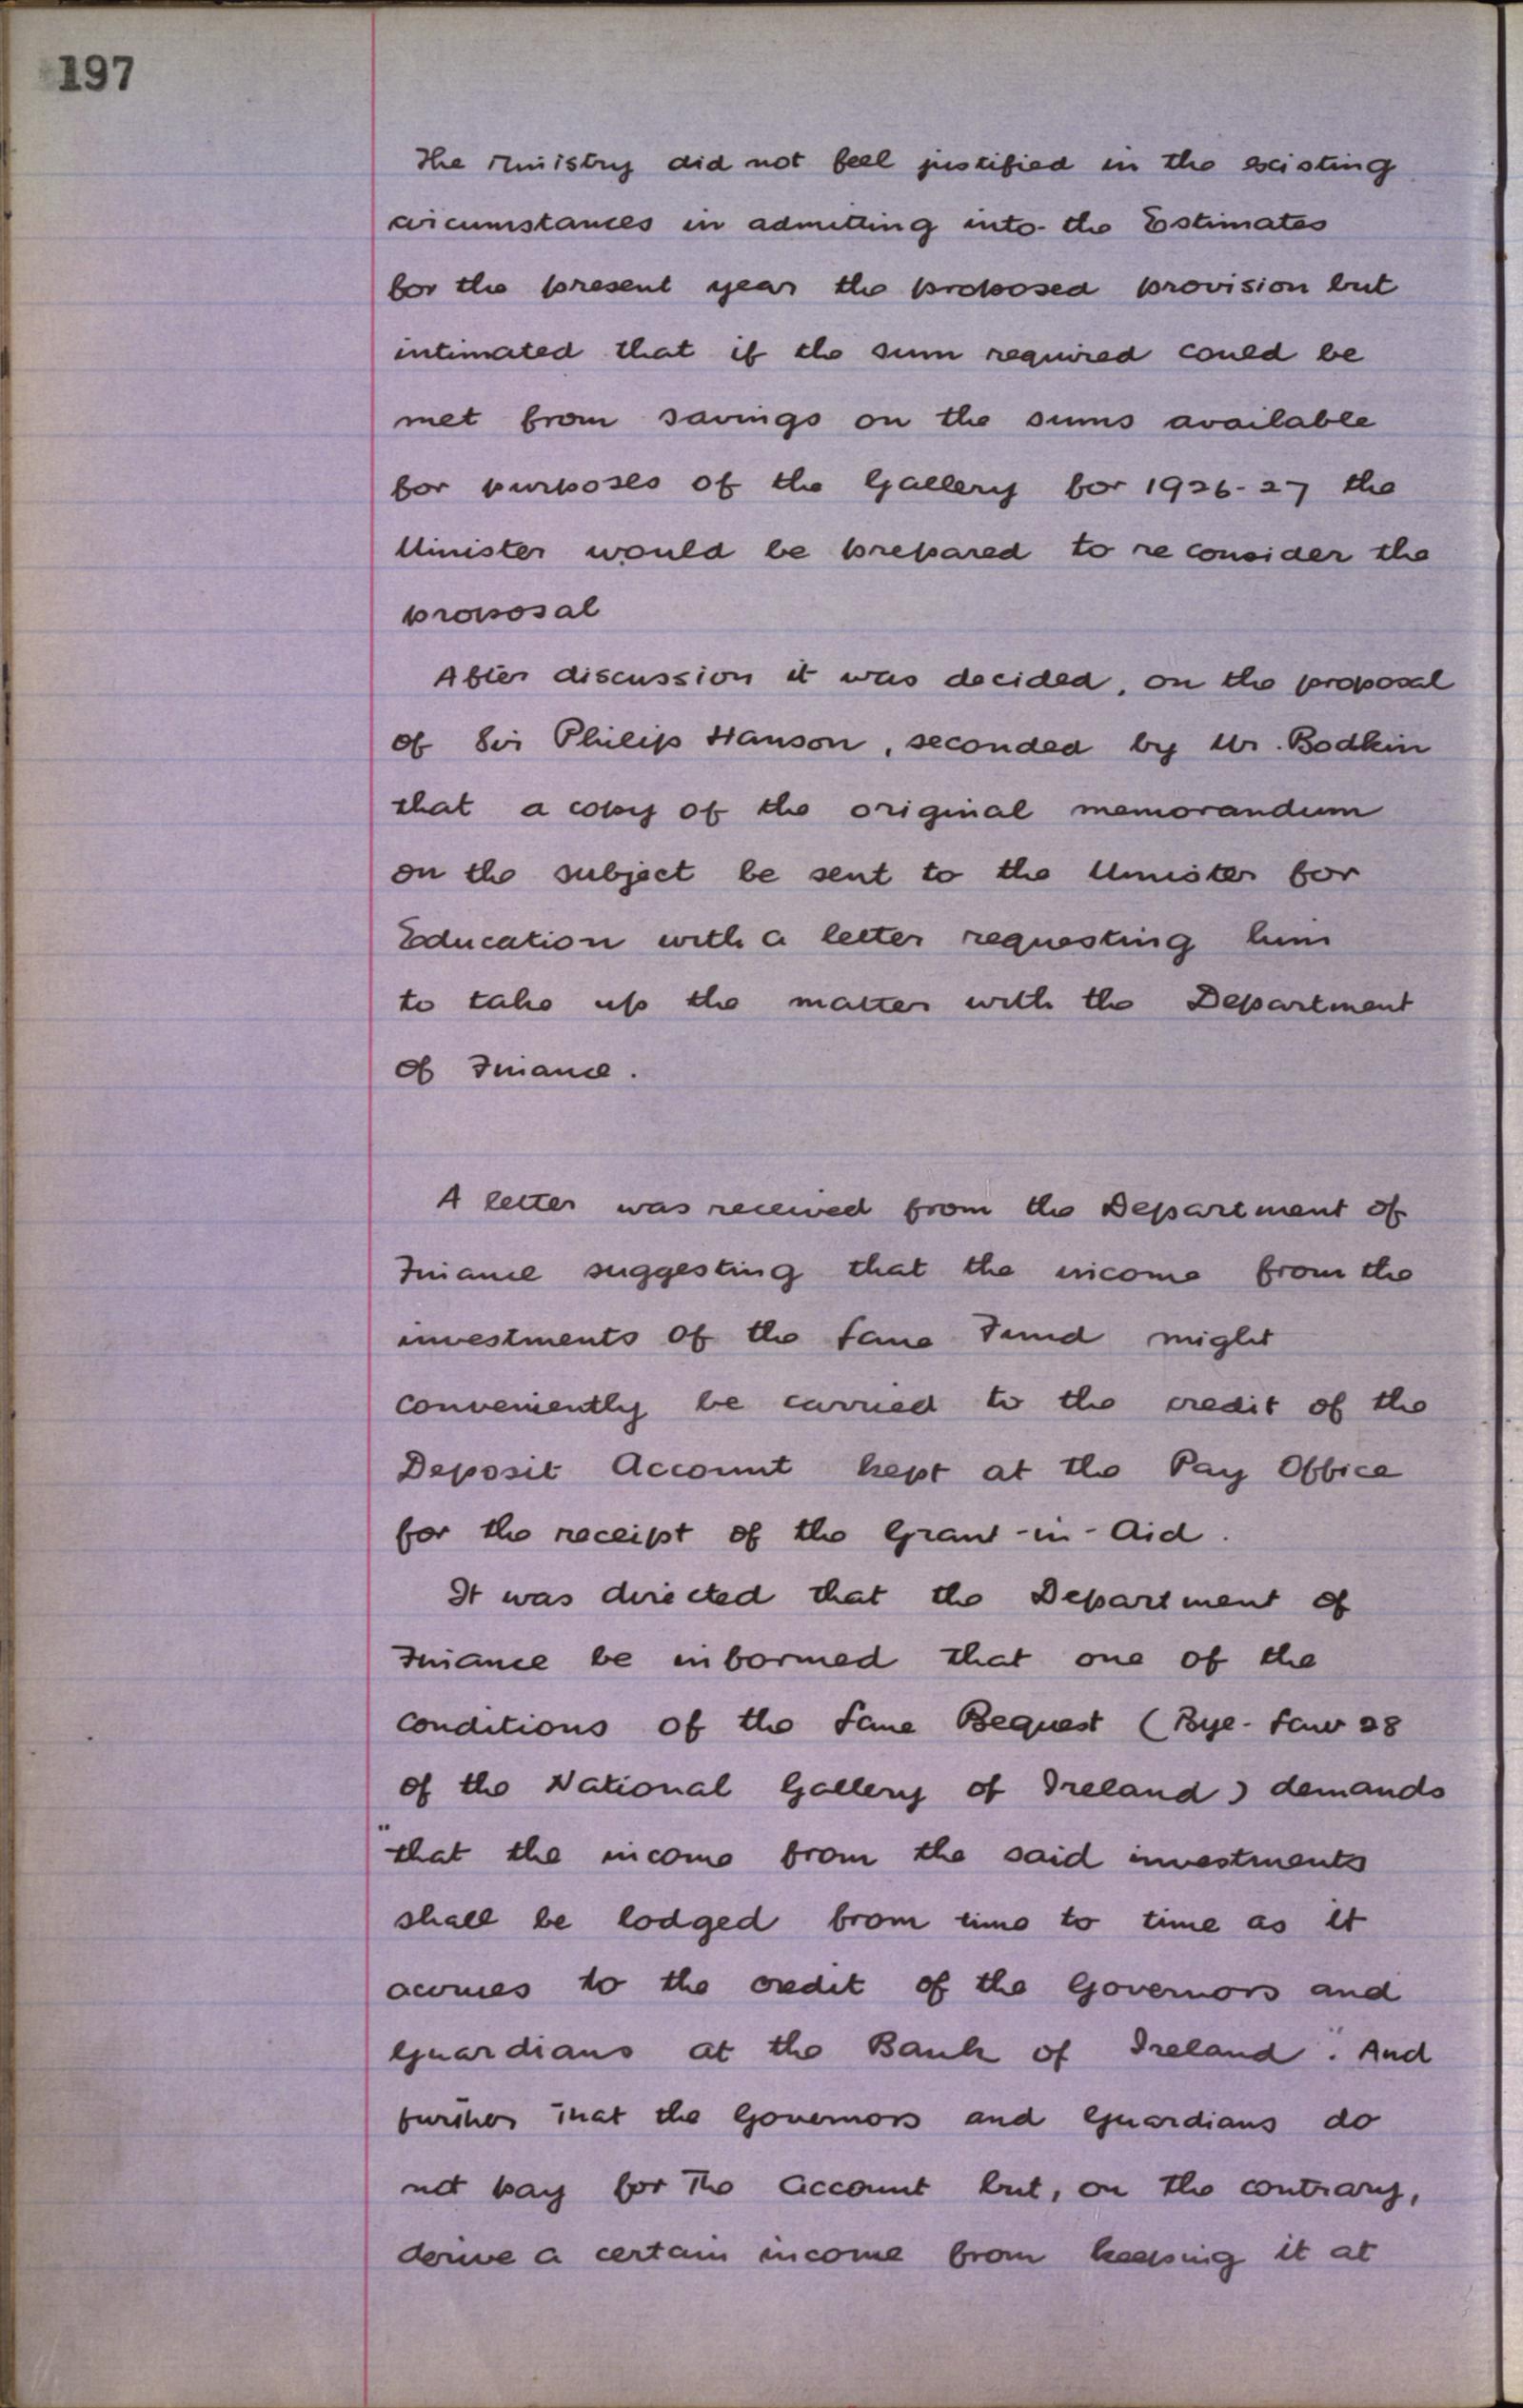 197
The Ministry did not feel justified in the existing
circumstances in admitting into the Estimates
for the present year the proposed provision but
intimated that if the sum required could be
met from savings on the sums available
for purposes of the Gallery for 1926-27 the
Minister would be prepared to reconsider the
proposal
After discussion it was decided, on the proposal
of Sir Philip Hanson, seconded by Mr. Bodkin
that a copy of the original memorandum
on the subject be sent to the Minister for
Education with a letter requesting him
to take up the matter with the Department
of Finance.
A letter was received from the Department of
Finance suggesting that the income from the
investments of the Lane Fund might
conveniently be carried to the credit of the
Deposit Account kept at the Pay Office
for the receipt of the Grant-in-Aid.
It was directed that the Department of
Finance be informed that one of the
conditions of the Lane Bequest (Bye-Law 28
of the National Gallery of Ireland) demands
"that the income from the said investments
shall be lodged from time to time as it
accrues to the credit of the Governors and
Guardians at the Bank of Ireland". And
further that the Governors and Guardians do
not pay for the account but, on the contrary,
derive a certain income from keeping it at